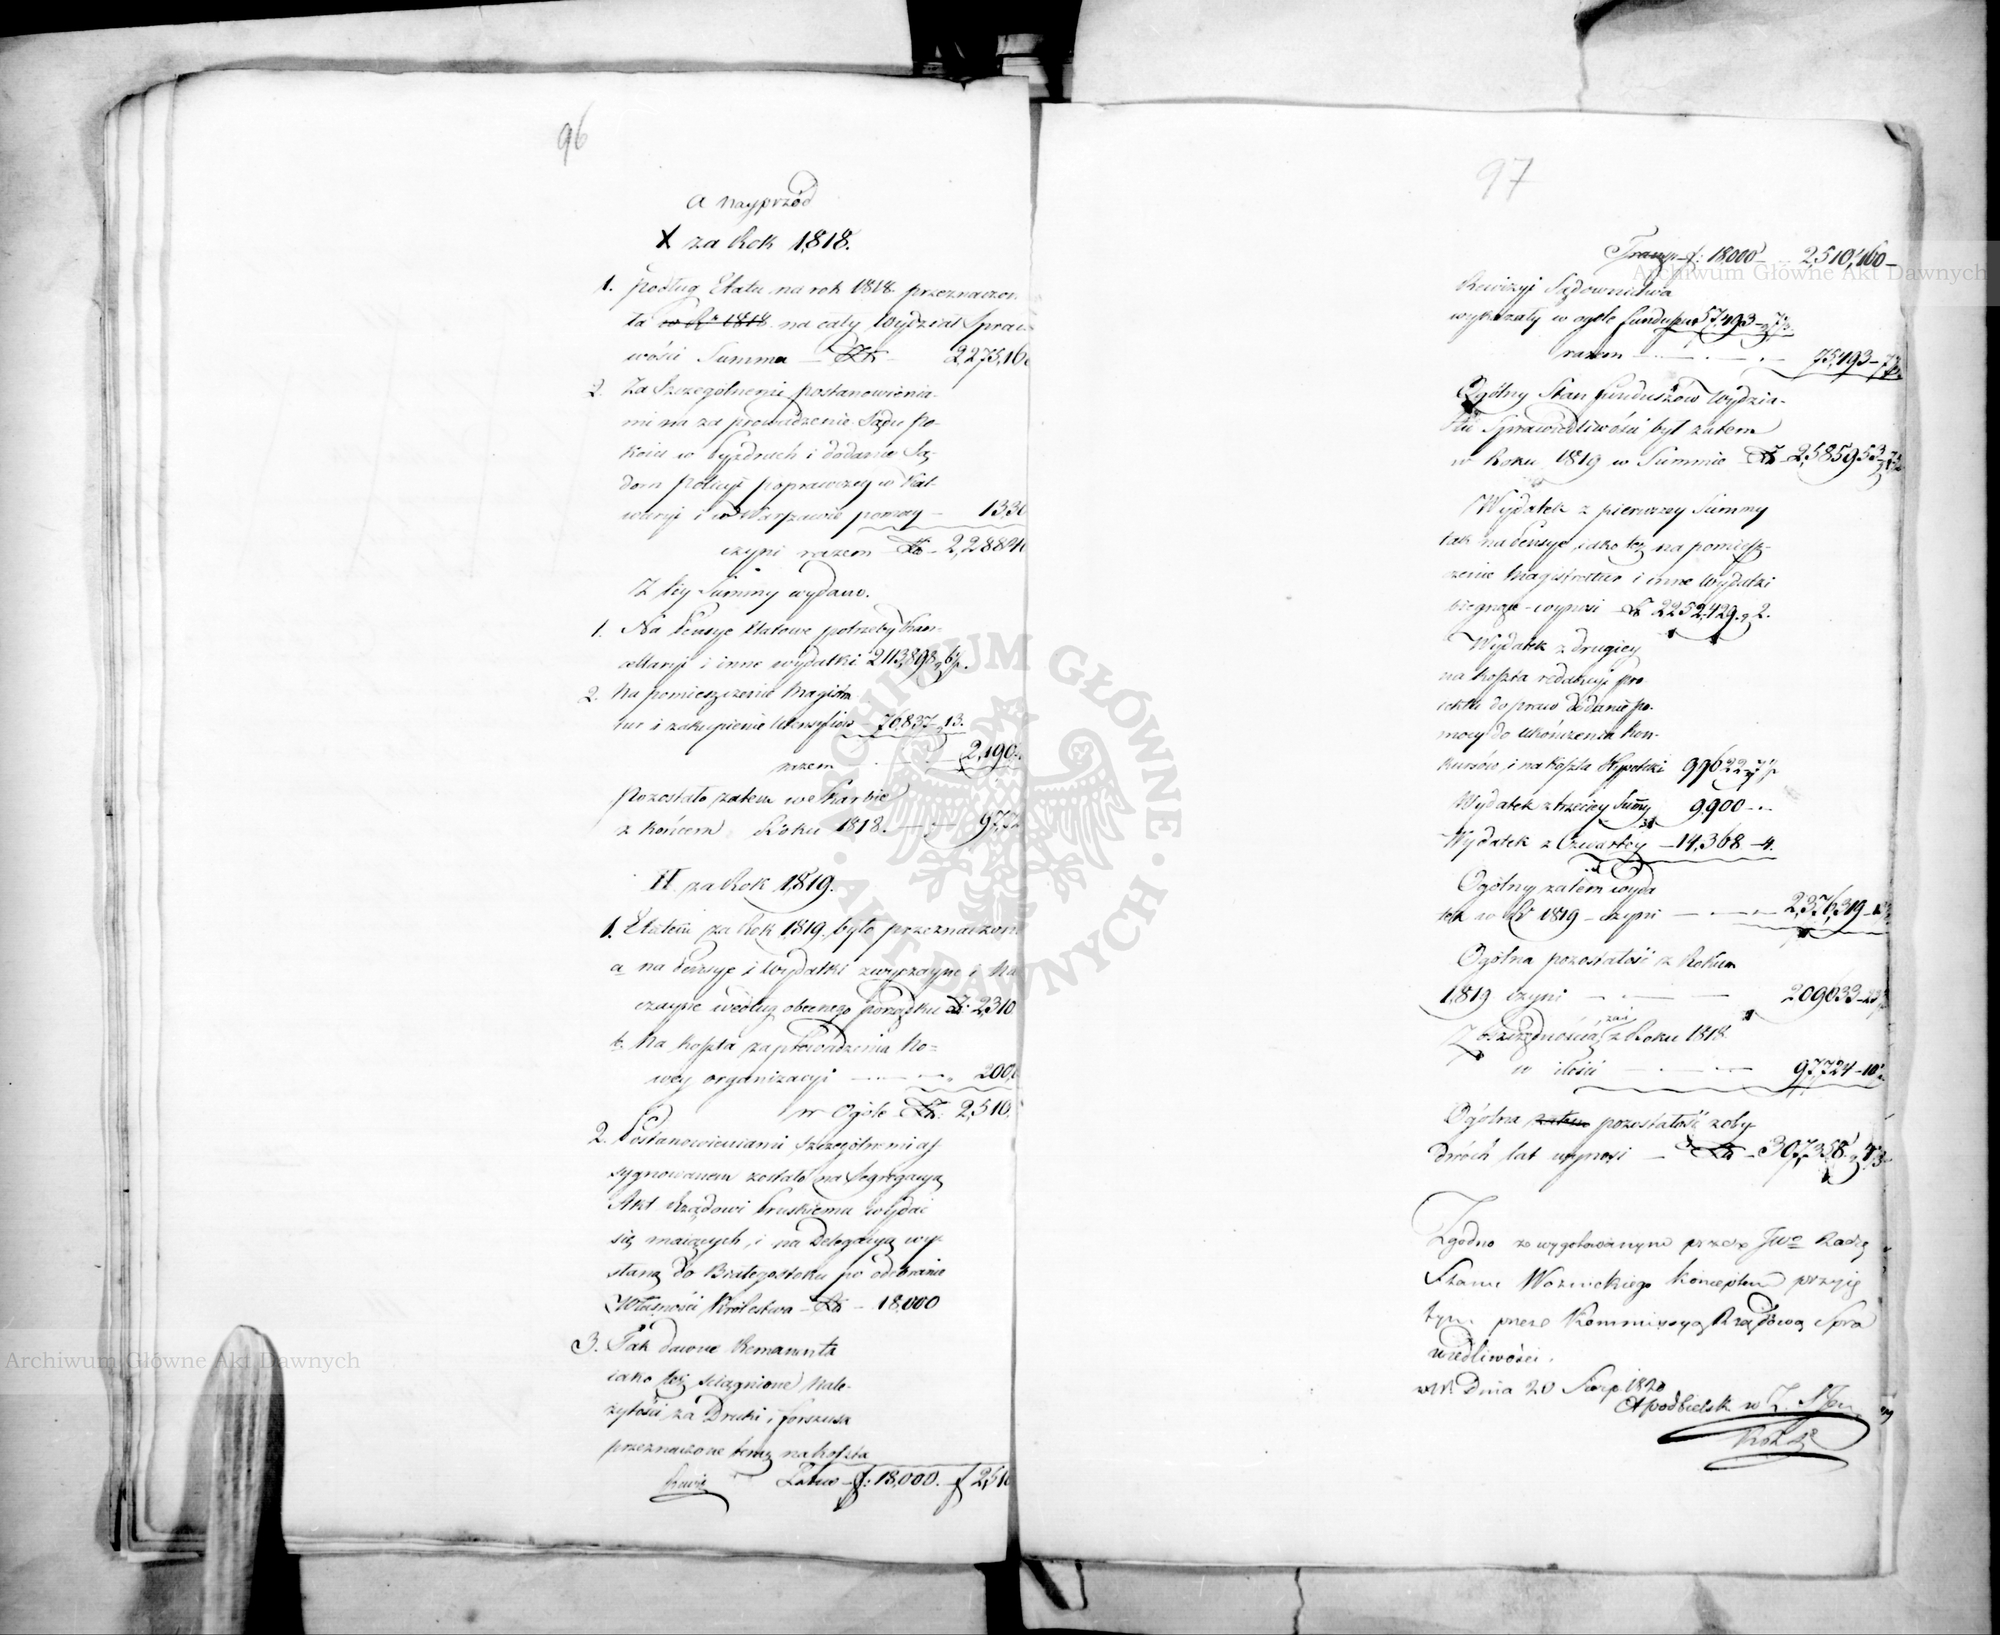 96
a nayprzód
X za Rok 1818.
1. podług Etatu na rok 1818 przeznaczon
ta w R. 1818 na cały Wydział Spraw
wości Summa — Zł. 2,275,16
2. Za Szczególnemi postanowienia-
mi na zaprowadzenie Sądu Po-
koiu w i dodanie Są-
dom policyi poprawczey w Kal-
waryi i w Warszawie pomocy — 13,3
czyni razem Zł. — 2,288,4
Z tey Summy wydano.
1. Na Pensye Etatowe potrzeby Kan-
cellaryi i inne wydatki 2,113,898 g 6
2. Na pomieszczenie Magistra
tur i zakupienie Utensyliów — 76,837 — 13.
razem 2,190
Pozostało zatem w Skarbie
z końcem Roku 1818. — 97,7
II za Rok 1819.
1. Etatem za Rok 1819 było przeznaczon
a na Pensye i Wydatki zwyczayne i Na
czayne według obecnego porządku Zł. 2,310
b. Na koszta zaprowadzenia No=
wey organizacyi — 200,
w Ogóle Zł. 2,510
2. Postanowieniami szczególnemi as
sygnowanem zostało na Segregacyą
Akt Rządowi Pruskiemu wydać
się maiących, i na Delegacyą wy-
słaną do Białegostoku po odebranie
Własności Królestwa — Zł. — 18,000
3. Tak dawne Remanenta
iako też ściągnione nale-
żytości za Druki i forszusa
przeznaczone teraz na koszta
Rewiz Latus — f: 18,000. f 2,510
97
Transp. f: 18000 — 2,510,160 —
Rewizyi Sądownictwa
wykazały w ogóle fundusz 57,493 — 7
razem — 75,493 — 7
Ogólny Stan funduszów Wydzia-
łu Sprawiedliwości był zatem
w Roku 1819 w Summie Zł. 2,585,953
Wydatek z pierwszey Summy
tak na Pensye, iako też na pomiesz-
czenie Magistratur i inne Wydatki
bieżące — wynosi Zł. 2252,429 g 2.
Wydatek z drugiey
na koszta redakcyi pro
iektu do praw dodanie po-
mocy do ukończenia kon-
kursów, i na koszta Hypoteki 99622
Wydatek z trzeciey Summy 9,900 —
Wydatek z Czwartey — 14,368 — 4.
Ogólny zatem wyda
tek w R. 1819 — czyni — 2,376,319
Ogólna pozostałość z Rokiem
1819 czyni — 209633 — 23
Z oszczędnością zaś z Roku 1818
w ilości — 97,724 — 10
Ogólna zatem pozostałość z oby-
dwóch lat wynosi — Zł. — 307,358
Zgodno z wygotowanym przez JWo Radzę
Stanu Woznickiego konceptem przyię
tym przez Kommissyą Rządową Spra
wiedliwości.
Dnia 20 Sierp. 1820